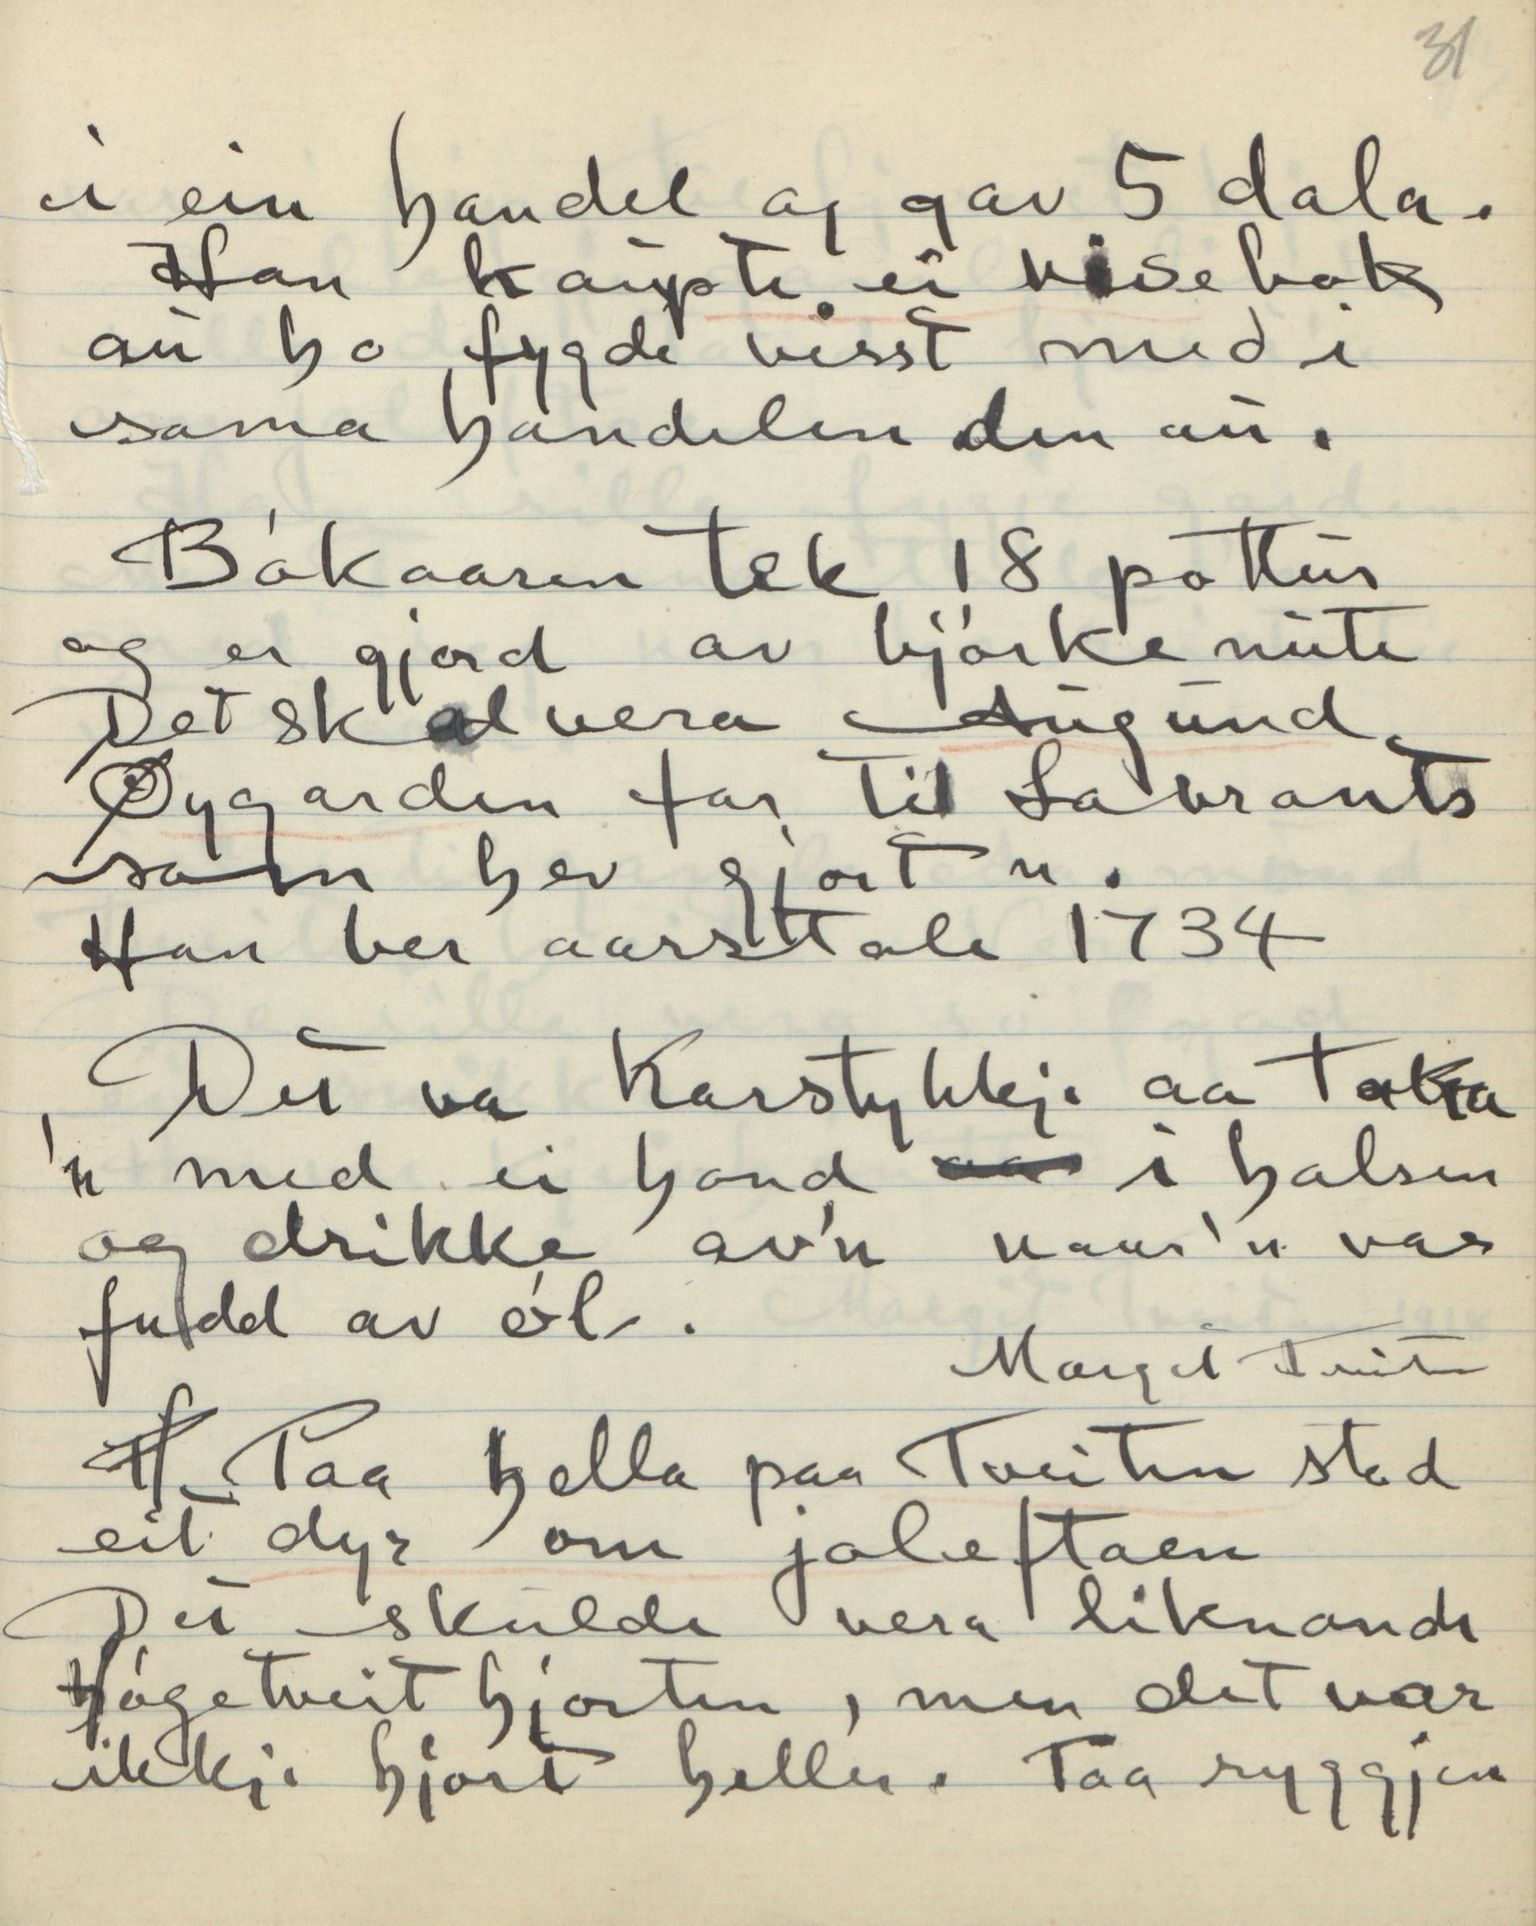 31
i ein handel og gav 5 dala.
Han kaupte ei visebok
au ho fygde visst med i
sama handelen den au.
Bókaaren tek 18 pottur
og er gjord av bjørkenute
Det skal vera Augund
Øygarden far til Lavrants
som hev gjort n.
Han ber aarstale 1734
Det va karstykkje aa taka
'n med ei hond i halsen
og drikke av'n naar'n var
fudd av øl.
Margit Tveiten
Paa hella paa Tveiten stod
eit dyr om joleftaen
Det skulde vera liknande
Høgetveit hjorten, men det var
ikkje hjort heller. Taa ryggjen